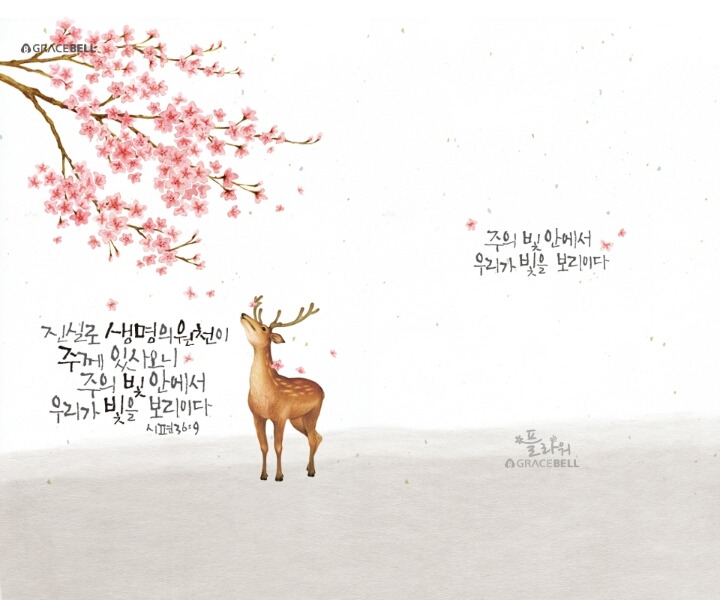 GRACEBELL
진실로 생명의 원천이
주께 있사오니
주의 빛 안에서
우리가 빛을 보리이다
시편36:9
주의 빛 안에서
우리가 빛을 보리이다
플라워
GRACEBELL